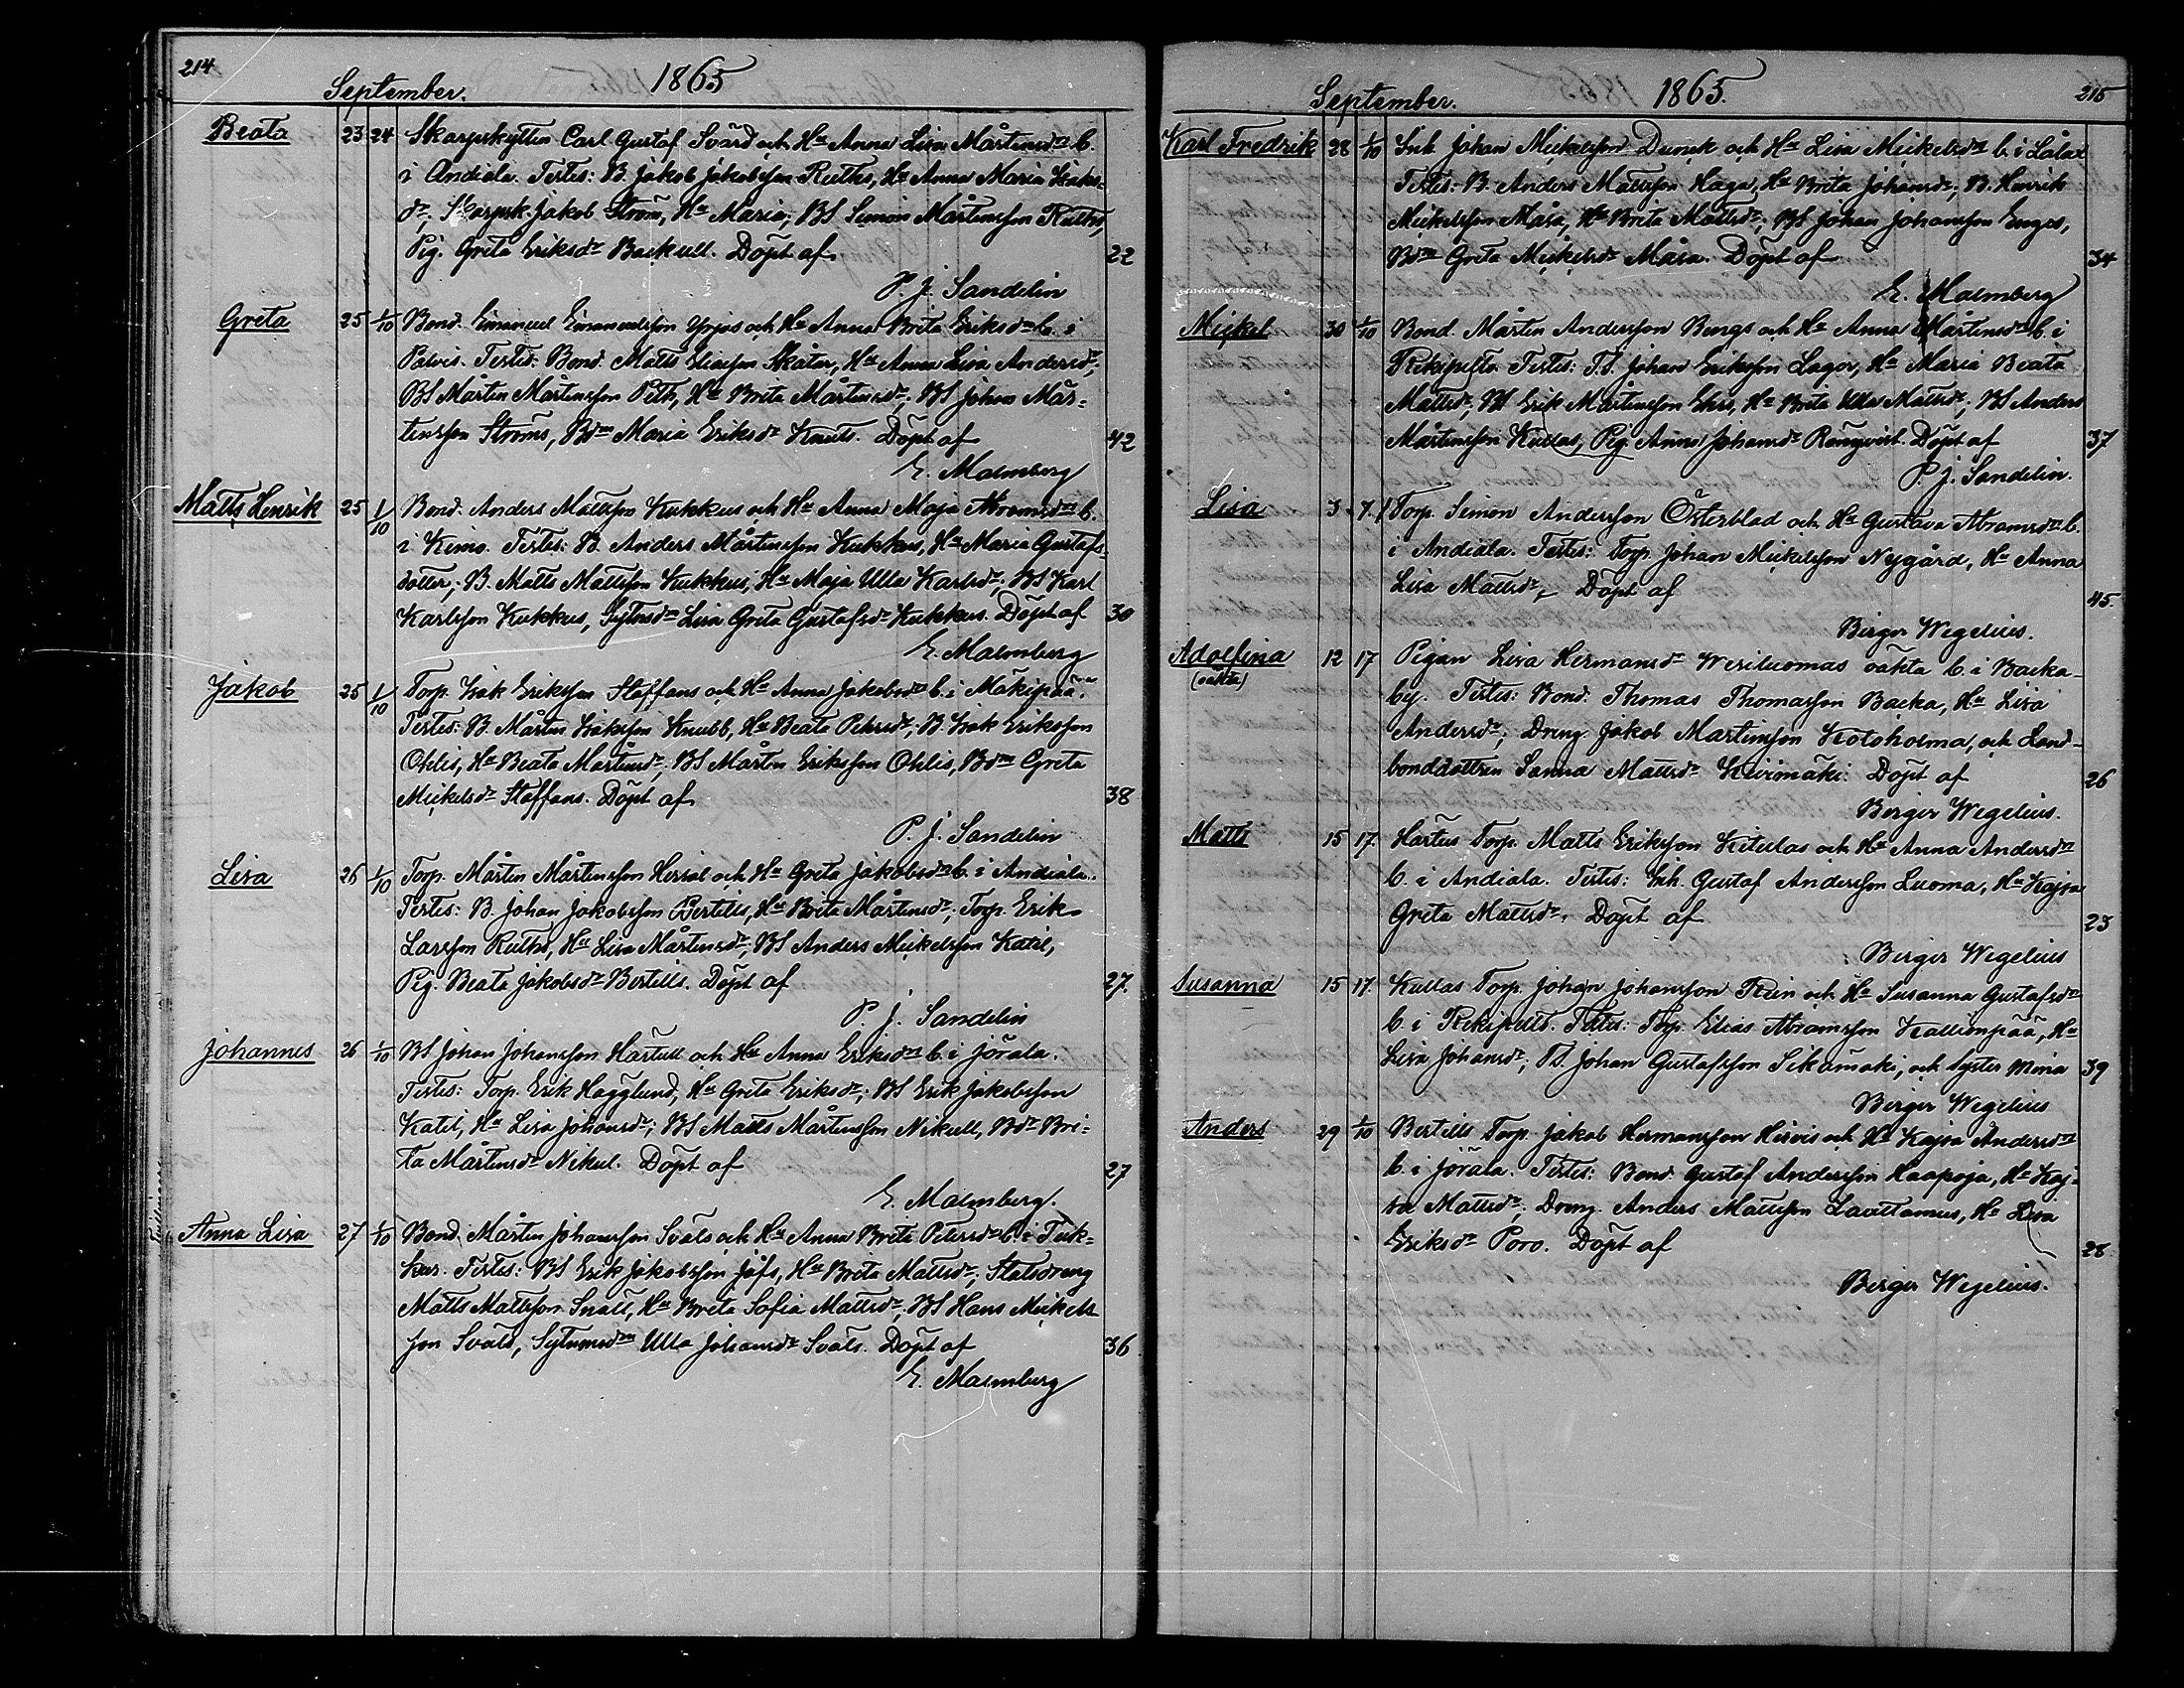 214
September. 1865
Beata 23 24 Skarpskytten Carl Gustaf Svärd och Hu Anna Lisa Mårtensdr b.
i Andiala. Testes: B. Jakob Jakobsson Ruths, Hu Anna Maria Isaks-
dr, Skarpsk. Jakob Ström, Hu Maria; BS Simon Mårtensson Ruths,
Pig. Greta Eriksdr Backull. Döpt af 22
P. J. Sandelin
Greta 25 1/10 Bond. Emanuel Emanuelsson Yrjas och Hu Anna Brita Eriksdr b. i
Palvis. Testes: Bond. Matts Eliasson Skatar, Hu Anna Lisa Andersdr;
BS Mårten Mårtensson Peth, Hu Brita Mårtensdr; BS Johan Mår-
tensson Ströms, Bdm Maria Eriksdr Knuts. Döpt af 42
E. Malmberg
Matts Henrik 25 1/10 Bond. Anders Mattsson Kukkus och Hu Anna Maja Abramsdr b.
i Kimo. Testes: B. Anders Mårtensson Kukkus, Hu Maria Gustafs-
dotter; B. Matts Mattsson Kukkus, Hu Maja Ulla Karlsdr; BS Karl
Karlsson Kukkus, Sytnsdm Lisa Greta Gustafsdr Kukkus. Döpt af 30
E. Malmberg
Jakob 25 1/10 Torp. Isak Eriksson Staffans och Hu Anna Jakobsdr b. i Mäkipää.
Testes: B. Mårten Isaksson Knubb, Hu Beata Pehrsdr; B. Isak Eriksson
Ohlis, Hu Beata Mårtensdr; BS Mårten Eriksson Ohlis, Bdm Greta
Mickelsdr Staffans. Döpt af 38
P. J. Sandelin
Lisa 26 1/10 Torp. Mårten Mårtensson Herral och Hu Greta Jakobsdr b. i Andiala.
Testes: B. Johan Jakobsson Bertills, Hu Brita Mårtensdr; Torp. Erik
Larsson Ruths, Hu Lisa Mårtensdr; BS Anders Mickelsson Katil,
Pig. Beata Jakobsdr Bertills. Döpt af 27.
P. J. Sandelin
Johannes 26 1/10 BS Johan Johansson Hartull och Hu Anna Eriksdr b. i Jörala.
Testes: Torp. Erik Hägglund, Hu Greta Eriksdr; BS Erik Jakobsson
Katil, Hu Lisa Johansdr; BS Matts Mårtensson Nikull, Bdr Bri-
ta Mårtensdr Nikul. Döpt af 27
E. Malmberg.
Anna Lisa 27 1/10 Bond. Mårten Johansson Svals och Hu Anna Brita Petersdr b. i Tuk-
kur. Testes: BS Erik Jakobsson Jåfs, Hu Brita Mattsdr; Statsdreng
Matts Mattsson Snåll, Hu Brita Sofia Mattsdr; BS Hans Mickels-
son Svals, Sytnmsdm Ulla Johansdr Svals. Döpt af 36
E. Malmberg
215
September. 1865.
Karl Fredrik 28 1/10 Inh. Johan Mickelsson Dunck och Hu Lisa Mickelsdr b. i Lålax
Testes: B. Anders Mattsson Haga, Hu Brita Johansdr; B. Henrik
Mickelsson Måsa, Hu Brita Mattsdr; BS Johan Johansson Enges,
Bdm Greta Mickelsdr Måsa. Döpt af 34
E. Malmberg
Mickel 30 1/10 Bond. Mårten Andersson Bengs och Hu Anna Mårtensdr b. i
Rekipelto. Testes: T.S. Johan Eriksson Lagor, Hu Maria Beata
Mattsdr; BS Erik Mårtensson Ehrs, Hu Brita Ulla Mattsdr; BS Anders
Mårtensson Kullas, Pig. Anna Johansdr Ranqvist. Döpt af 37
P. J. Sandelin.
Lisa 3. 7. Torp. Simon Andersson Österblad och Hu Gustava Abramsdr b.
i Andiala. Testes: Torp. Johan Mickelsson Nygård, Hu Anna
Lisa Mattsdr, Döpt af 45.
Birger Wegelius.
Adolfina 12 17 Pigan Lisa Hermansdr Wesiluomas oäkta b. i Backa-
(oäkta) by. Testes: Bond. Thomas Thomasson Backa, Hu Lisa
Andersdr; Dreng Jakob Martinsson Kotoholma, och Land-
bonddottren Sanna Mattsdr Kiviniäki. Döpt af 26
Birger Wegelius.
Matts 15 17. Hartus Torp. Matts Eriksson Kitulas och Hu Anna Andersdr
b. i Andiala. Testes: Inh. Gustaf Andersson Luoma, Hu Kajsa
Greta Mattsdr. Döpt af 23
Birger Wegelius
Susanna 15 17. Kullas Torp. Johan Johansson Rein och Hu Susanna Gustafsdr
b. i Rekipelto. Testes: Torp. Elias Abramsson Kallionpää, Hu
Lisa Johansdr; TS. Johan Gustafsson Sikamäki, och syster Mina 39
Birger Wegelius
Anders 29 1/10 Bertills Torp. Jakob Hermansson Hirvis och Hu Kajsa Andersdr
b. i Jörala. Testes: Bond. Gustaf Andersson Haapoja, Hu Kaj-
sa Mattsdr; Dreng. Anders Mattsson Lauttamus, Hu Lisa
Eriksdr Poro. Döpt af 28
Birger Wegelius.